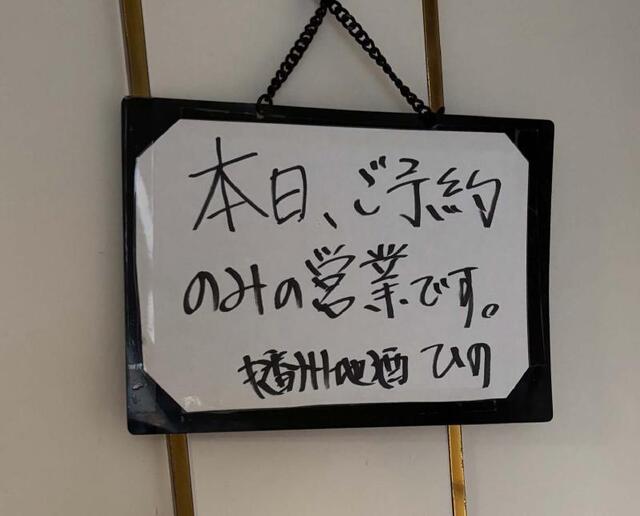 本日、ご予約
のみの営業です。
播州地酒 ひの